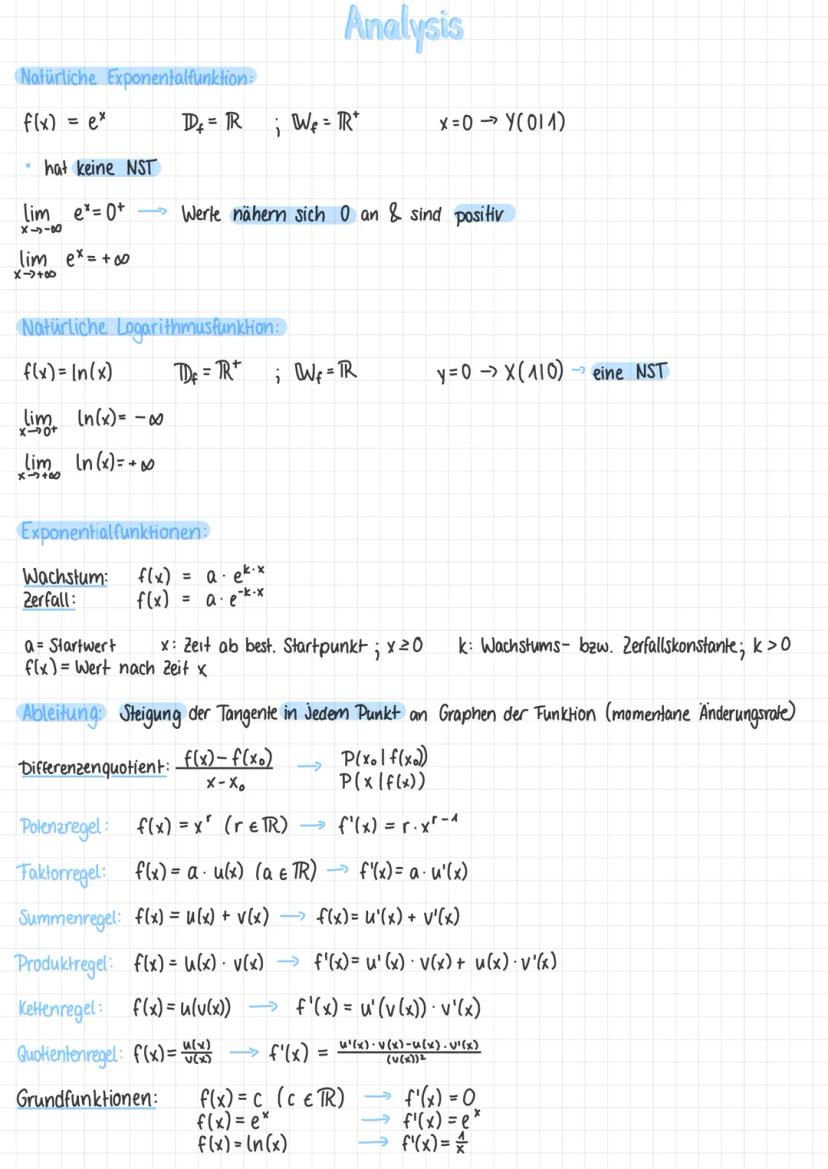 Analysis
Natürliche Exponentalfunktion:
f(x) = eˣ 𝔻f = ℝ ; 𝕎f = ℝ⁺ x=0 → Y(0|1)
• hat keine NST
lim x→-∞ eˣ = 0⁺ → Werte nähern sich 0 an & sind positiv
lim x→+∞ eˣ = +∞
Natürliche Logarithmusfunktion:
f(x) = ln(x) 𝔻f = ℝ⁺ ; 𝕎f = ℝ y=0 → X(1|0) → eine NST
lim x→0⁺ ln(x) = -∞
lim x→+∞ ln(x) = +∞
Exponentialfunktionen:
Wachstum: f(x) = a · e^(k·x)
Zerfall: f(x) = a · e^(-k·x)
a = Startwert x: Zeit ab best. Startpunkt ; x ≥ 0 k: Wachstums- bzw. Zerfallskonstante; k > 0
f(x) = Wert nach Zeit x
Ableitung: Steigung der Tangente in jedem Punkt an Graphen der Funktion (momentane Änderungsrate)
Differenzenquotient: (f(x) - f(x₀))/(x - x₀) → P(x₀ | f(x₀))
P(x | f(x))
Potenzregel: f(x) = xʳ (r ∈ ℝ) → f'(x) = r · xʳ⁻¹
Faktorregel: f(x) = a · u(x) (a ∈ ℝ) → f'(x) = a · u'(x)
Summenregel: f(x) = u(x) + v(x) → f(x) = u'(x) + v'(x)
Produktregel: f(x) = u(x) · v(x) → f'(x) = u'(x) · v(x) + u(x) · v'(x)
Kettenregel: f(x) = u(v(x)) → f'(x) = u'(v(x)) · v'(x)
Quotientenregel: f(x) = u(x)/v(x) → f'(x) = (u'(x) · v(x) - u(x) · v'(x))/(v(x))²
Grundfunktionen: f(x) = c (c ∈ ℝ) → f'(x) = 0
f(x) = eˣ → f'(x) = eˣ
f(x) = ln(x) → f'(x) = 1/x